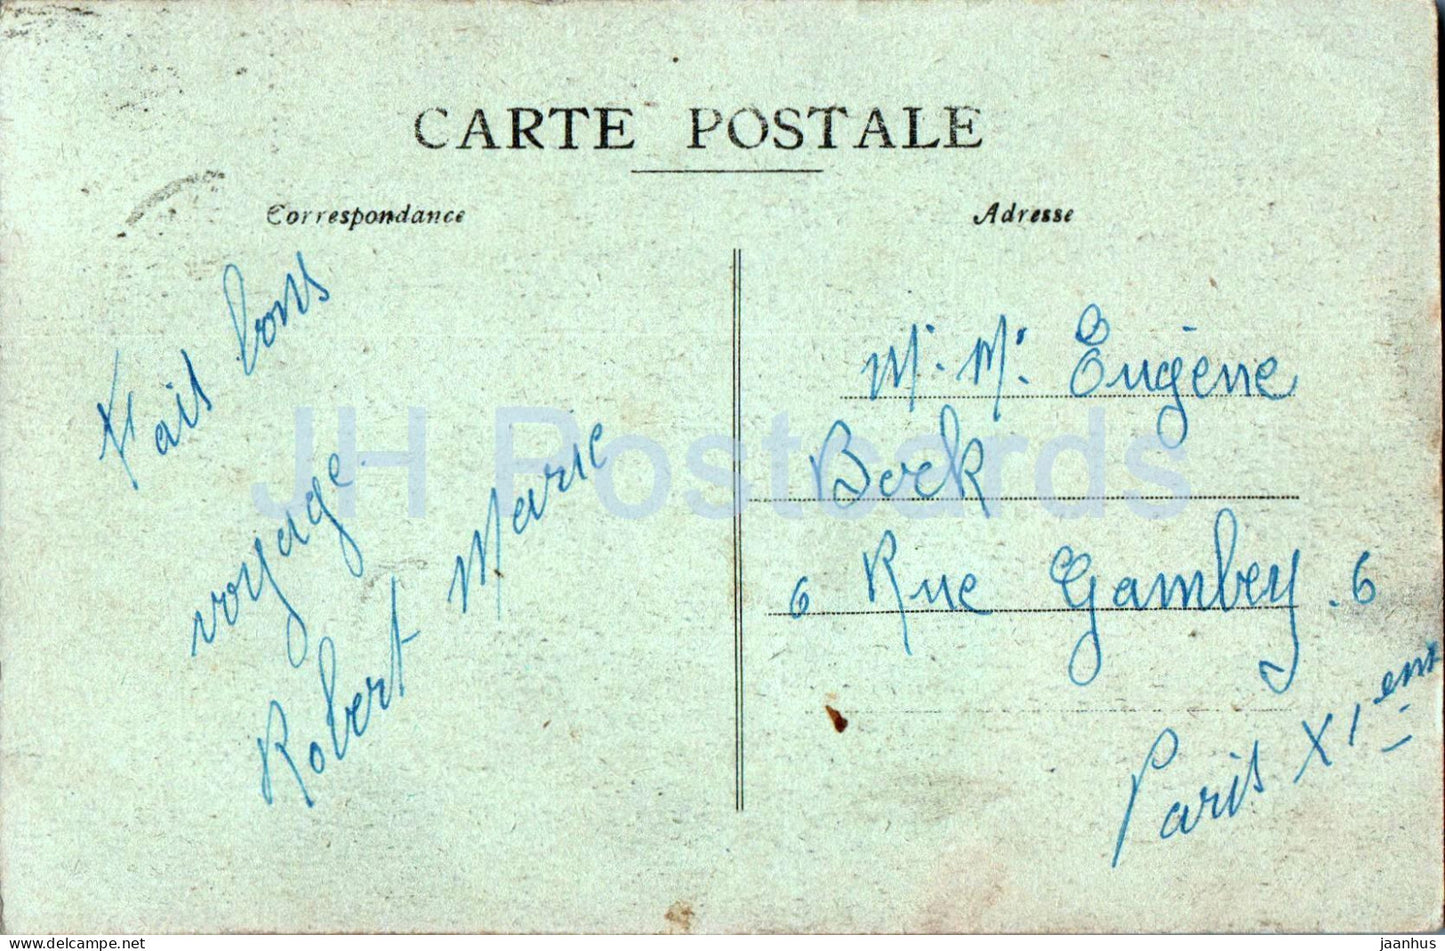 CARTE POSTALE
Correspondance
Fais bons
voyage.
Robert Marie
Adresse
Mr. Mr. Eugène
Bock
6 Rue Gambey . 6
Paris XIem
JH Postcards
delcampe.net
jaanhus